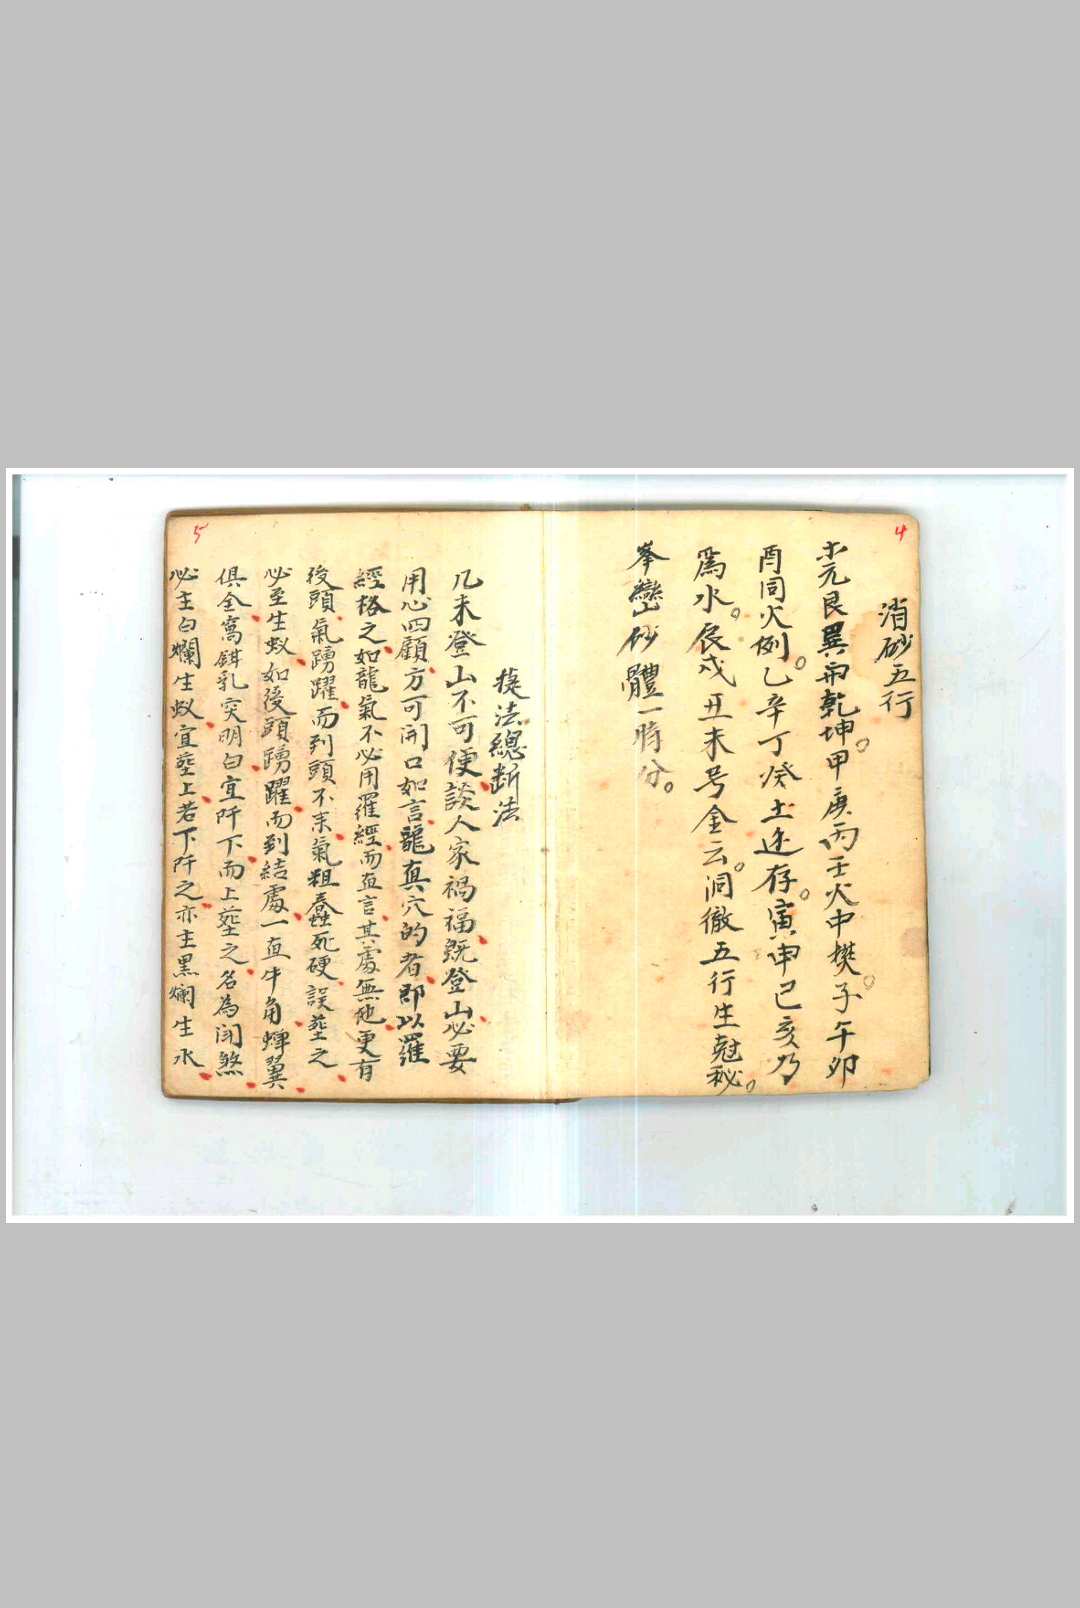 4
消砂五行
木元艮巽兩乾坤。甲庚丙壬火中樊。子午卯
酉同火例。乙辛丁癸土途存。寅申巳亥乃
爲水。辰戌丑未号金云。洞徹五行生尅秘。
峯巒砂體一時分。
5
法總斷法
凡未登山不可便談人家禍福既登山必要
用心四顧方可開口如言龍真穴的者即以羅
經格之如龍氣不必用羅經而直言其處無他更有
後頭氣踴躍而到頭不來氣粗蠢死硬誤葬之
必至生蚁如後頭踴躍而到結處一直牛角蟬翼
俱全窩鉗乳突明白宜阡下而上葬之名為閗煞
必主白爛生蚁宜葬上若下阡之亦主黑爛生水